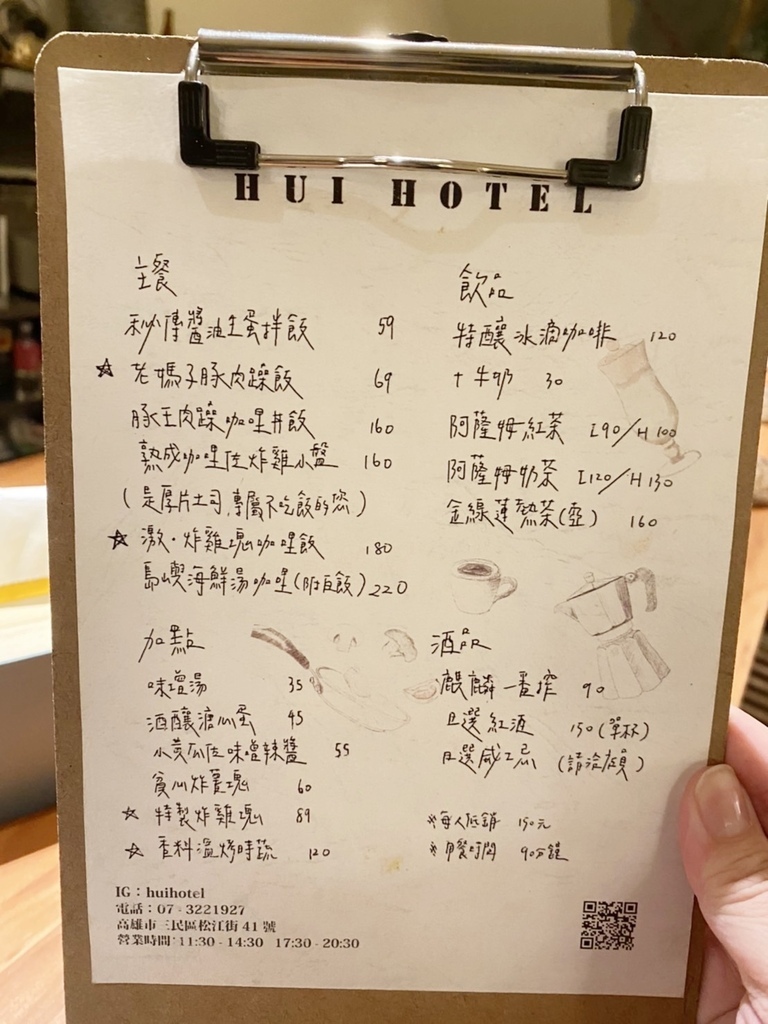 HUI HOTEL
主餐
秒傳醬油生蛋拌飯 59
☆ 老媽子豚肉躁飯 69
豚王肉躁咖哩丼飯 160
熟成咖哩佐炸雞小盤 160
(是厚片土司,專屬不吃飯的您)
☆ 激・炸雞塊咖哩飯 180
島嶼海鮮湯咖哩(附白飯) 220
飲品
特釀冰滴咖啡 120
+牛奶 30
阿薩姆紅茶 I90/H100
阿薩姆奶茶 I120/H130
金線蓮熱茶(壺) 160
加點
味增湯 35
酒釀溏心蛋 45
小黃瓜佐味噌辣醬 55
貪心炸薯塊 60
☆ 特製炸雞塊 89
☆ 香料溫烤時蔬 120
酒品
麒麟一番搾 90
日選紅酒 150(單杯)
日選威士忌 (請洽店員)
※每人低銷 150元
※用餐時間 90分鐘
IG:huihotel
電話:07-3221927
高雄市三民區松江街 41 號
營業時間:11:30-14:30 17:30-20:30